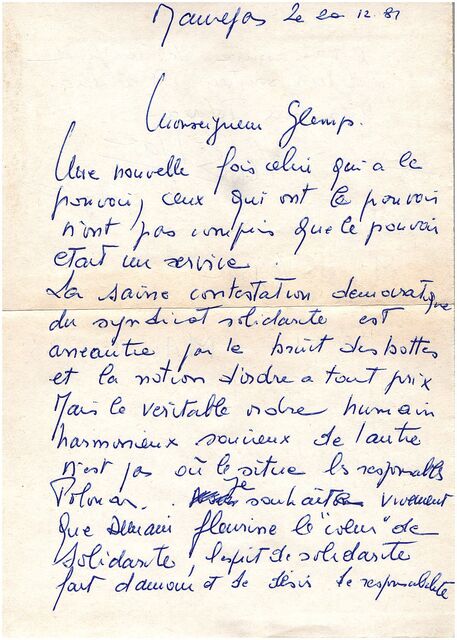 Maurepas le 20 12.81
Monseigneur Glemp.
Une nouvelle fois celui qui a le
pouvoir, ceux qui ont le pouvoir
n'ont pas compris que le pouvoir
etait un service.
La saine contestation democratique
du syndicat solidarite est
aneantie par le bruit des bottes
et la notion d'ordre a tout prix
Mais le veritable ordre humain
harmonieux soucieux de l'autre
n'est pas où le situe les responsables
Polonais. Je souhaite vivement
que demain fleurisse le "coeur" de
Solidarite, l'esprit de solidarite
fait d'amour et de désir de responsabilité